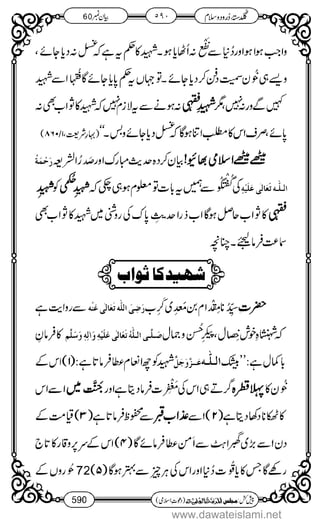 گلدستۂ درود و سلام ۵۹۰ بیان نمبر 60
واجب ہوا ہو اور دُنیا سے نفع نہ اُٹھایا ہو۔ شہید کا حکم یہ ہے کہ غسل نہ دیا جائے،
ویسے ہی خُون سمیت دفن کر دیا جائے۔ تو جہاں یہ حکم پایا جائے گا فقہا اسے شہید
کہیں گے ورنہ نہیں، مگر شہیدِ فقہی نہ ہونے سے یہ لازم نہیں کہ شہید کا ثواب بھی نہ
پائے، صرف اس کا مطلب اتنا ہوگا کہ غسل دیا جائے وبس۔‘‘ (بہار شریعت،۱/۸۶۰)
میٹھے میٹھے اسلامی بھائیو! بیان کردہ حدیث مبارک اور صدرُ الشریعہ رَحْمَۃُ
اللہ تَعَالٰی عَلَیْہ کی گفتگو سے ہمیں یہ بات تو معلوم ہو ہی چکی کہ شہیدِ حکمی کو شہیدِ
فقہی کا ثواب حاصل ہوگا اب ذرا حدیثِ پاک کی روشنی میں شہید کا ثواب بھی
سماعت فرما لیجئے۔ چنانچہ
شہید کا ثواب
حضرت سیِّدُنا مِقْدَام بن مَعْدِی کَرِب رَضِیَ اللہُ تَعَالٰی عَنْہ سے روایت ہے
کہ شہنشاہِ خوش خِصال، پیکرِ حُسن و جمال صَلَّی اللہُ تَعَالٰی عَلَیْہِ وَاٰلِہٖ وَسَلَّم کا فرمانِ
باکمال ہے: ’’بیشک اللہ عَزَّوَجَلَّ شہید کو چھ انعام عطا فرماتا ہے: (1) اس کے
خُون کا پہلا قطرہ گرتے ہی اس کی مغفرت فرما دیتا ہے اور جنّت میں اسے اس
کا ٹھکانا دکھا دیتا ہے (2) اسے عذابِ قبر سے محفوظ فرماتا ہے (3) قیامت کے
دن اسے بڑی گھبراہٹ سے امن عطا فرمائے گا (4) اس کے سر پر وقار کا تاج
رکھے گا جس کا یاقوت دُنیا اور اس کی ہر چیز سے بہتر ہوگا (5) 72 حوروں کے
590
www.dawateislami.net